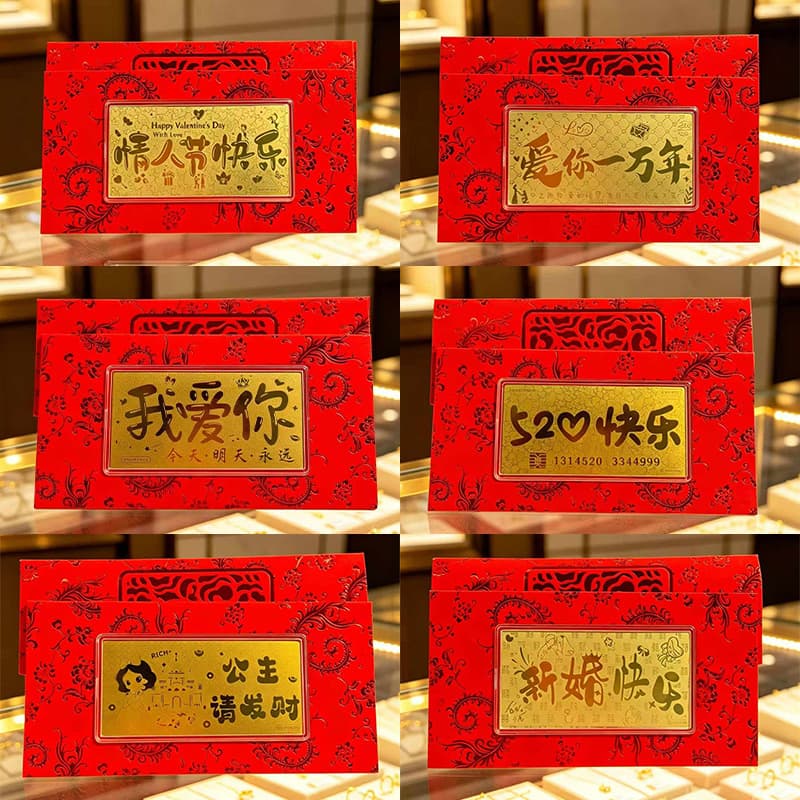 Happy Valentine's Day
With Love
情人节快乐
爱你一万年
我爱你
今天·明天·永远
520♡快乐
1314520 3344999
RICH
公主
请发财
新婚快乐